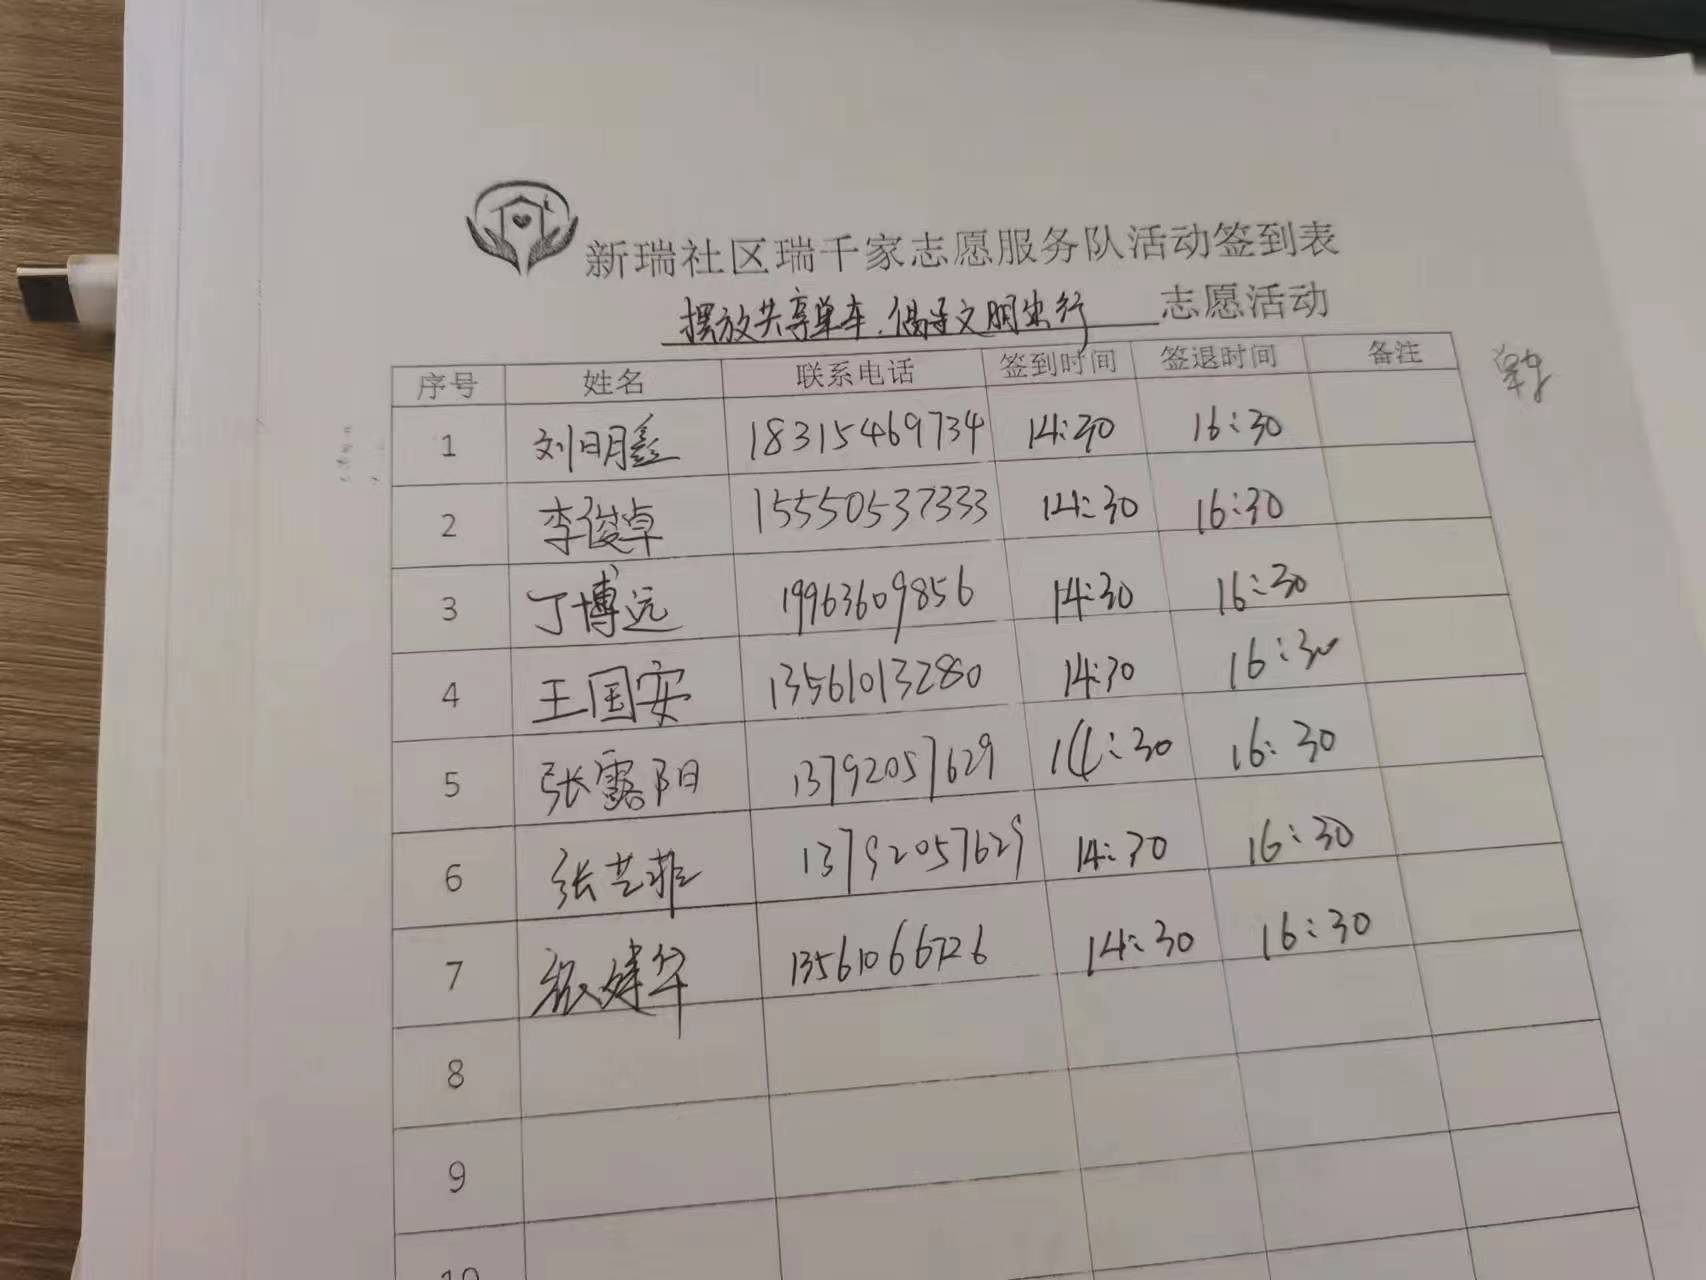 新瑞社区瑞千家志愿服务队活动签到表
摆放共享单车,倡导文明出行 志愿活动
序号 姓名 联系电话 签到时间 签退时间 备注
1 刘明鑫 18315469734 14:30 16:30
2 李俊卓 15550537333 14:30 16:30
3 丁博远 19963609856 14:30 16:30
4 王国安 13561013280 14:30 16:30
5 张露阳 13792057629 14:30 16:30
6 张艺菲 13792057629 14:30 16:30
7 建华 13561066726 14:30 16:30
8
9
10